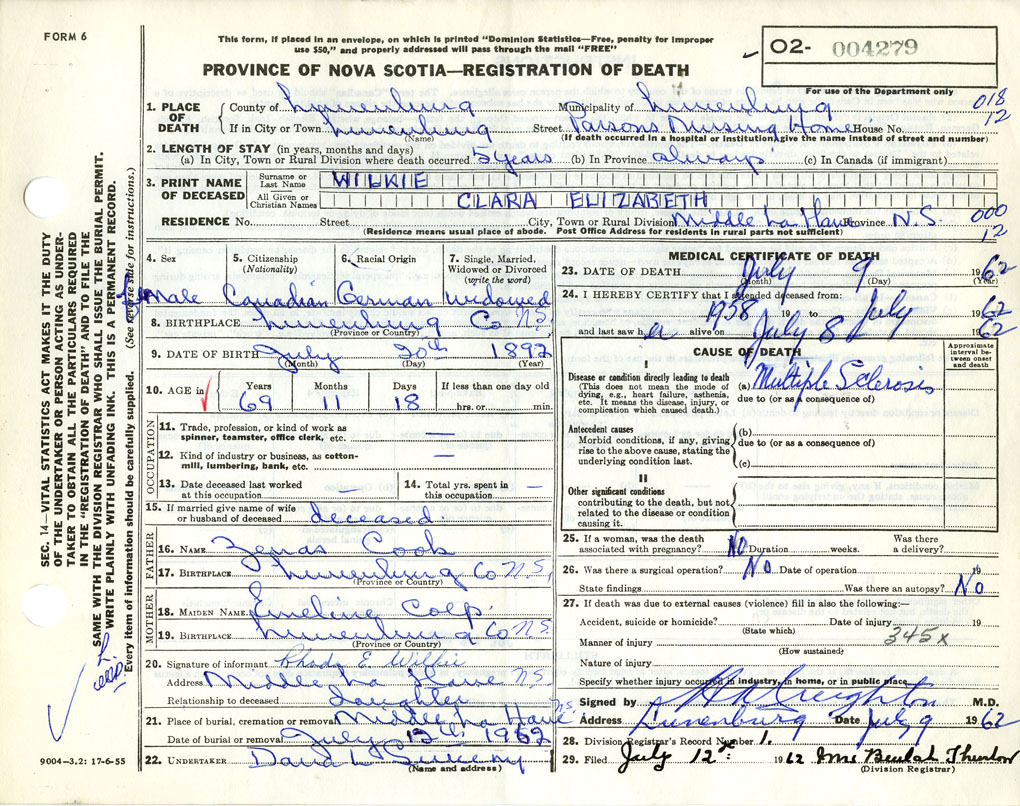 FORM 6
This form, if placed in an envelope, on which is printed "Dominion Statistics—Free, penalty for improper
use $50," and properly addressed will pass through the mail "FREE"
PROVINCE OF NOVA SCOTIA—REGISTRATION OF DEATH
O2- 004279
For use of the Department only
018
12
1. PLACE OF DEATH
County of Lunenburg Municipality of Lunenburg
If in City or Town Lunenburg Street Parsons Nursing Home House No.
(Name) (If death occurred in a hospital or institution, give the name instead of street and number)
2. LENGTH OF STAY (in years, months and days)
(a) In City, Town or Rural Division where death occurred 5 years (b) In Province always (c) In Canada (if immigrant)
3. PRINT NAME OF DECEASED
Surname or Last Name WILKIE
All Given or Christian Names CLARA ELIZABETH
RESIDENCE No. Street City, Town or Rural Division Middle La Have Province N.S. 000
12
(Residence means usual place of abode. Post Office Address for residents in rural parts not sufficient)
4. Sex 5. Citizenship (Nationality) 6. Racial Origin 7. Single, Married, Widowed or Divorced (write the word)
Female Canadian German widowed
8. BIRTHPLACE Lunenburg Co N.S.
(Province or Country)
9. DATE OF BIRTH July 20th 1892
(Month) (Day) (Year)
10. AGE in Years Months Days If less than one day old
69 11 18 hrs. or min.
OCCUPATION
11. Trade, profession, or kind of work as spinner, teamster, office clerk, etc. —
12. Kind of industry or business, as cotton-mill, lumbering, bank, etc. —
13. Date deceased last worked at this occupation — 14. Total yrs. spent in this occupation —
15. If married give name of wife or husband of deceased deceased.
FATHER
16. NAME Zenas Cook
17. BIRTHPLACE Lunenburg Co N.S.
(Province or Country)
MOTHER
18. MAIDEN NAME Emeline Colp.
19. BIRTHPLACE Lunenburg Co N.S.
(Province or Country)
20. Signature of informant Rhoda E. Wilkie
Address Middle La Have N.S.
Relationship to deceased Daughter
21. Place of burial, cremation or removal Middle La Have N.S.
Date of burial or removal July 12th 1962
22. UNDERTAKER
(Name and address)
MEDICAL CERTIFICATE OF DEATH
23. DATE OF DEATH July 9 1962
(Month) (Day) (Year)
24. I HEREBY CERTIFY that I attended deceased from:
1958 19 to July 1962
and last saw her alive on July 8 1962
CAUSE OF DEATH Approximate interval between onset and death
I
Disease or condition directly leading to death
(This does not mean the mode of dying, e.g., heart failure, asthenia, etc. It means the disease, injury, or complication which caused death.)
(a) Multiple Sclerosis
due to (or as a consequence of)
Antecedent causes
Morbid conditions, if any, giving rise to the above cause, stating the underlying condition last.
(b)
due to (or as a consequence of)
(c)
II
Other significant conditions
contributing to the death, but not related to the disease or condition causing it.
25. If a woman, was the death associated with pregnancy? No Duration weeks. Was there a delivery?
26. Was there a surgical operation? No Date of operation 19
State findings Was there an autopsy? No
27. If death was due to external causes (violence) fill in also the following:—
Accident, suicide or homicide? Date of injury 19
(State which)
Manner of injury 345x
(How sustained)
Nature of injury
Specify whether injury occurred in industry, in home, or in public place
Signed by H A Creighton M.D.
Address Lunenburg Date July 9 1962
28. Division Registrar's Record Number 1.
29. Filed July 12th 1962 Mrs Beulah Thurlow
(Division Registrar)
SEC. 14—VITAL STATISTICS ACT MAKES IT THE DUTY
OF THE UNDERTAKER OR PERSON ACTING AS UNDER-
TAKER TO OBTAIN ALL THE PARTICULARS REQUIRED
IN THE "REGISTRATION OF DEATH" AND TO FILE THE
SAME WITH THE DIVISION REGISTRAR WHO SHALL ISSUE THE BURIAL PERMIT.
WRITE PLAINLY WITH UNFADING INK. THIS IS A PERMANENT RECORD.
Every item of information should be carefully supplied. (See reverse side for instructions.)
9004-3.2: 17-6-55